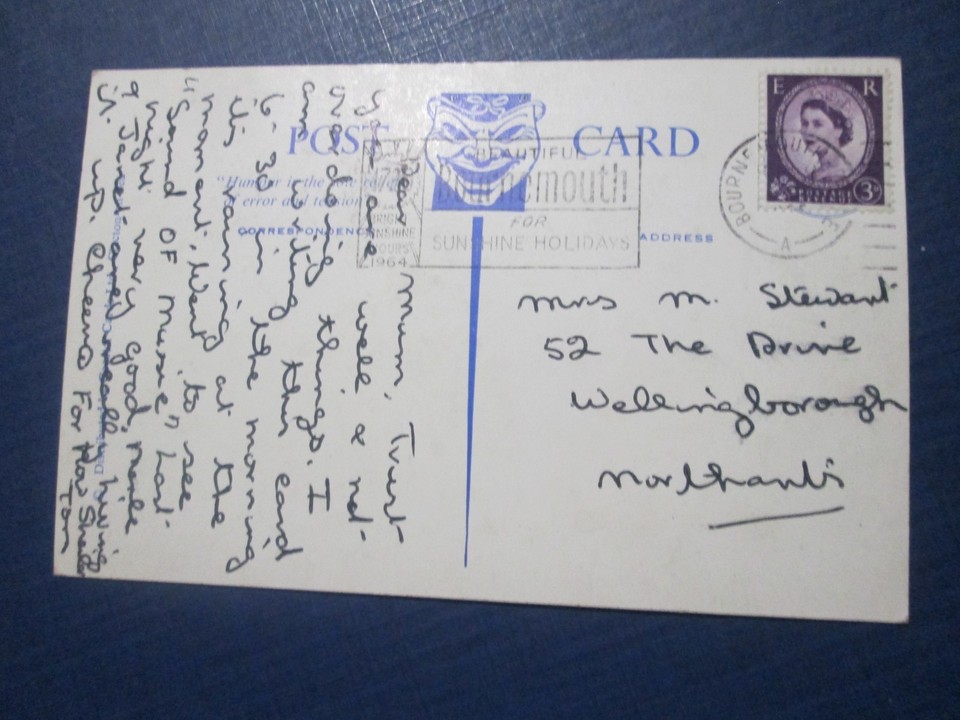 POST CARD
"Humour is the
of error and tension
CORRESPONDENCE
ADDRESS
E R
POSTAGE REVENUE
3D
BOURNEMOUTH
A
1964
BEAUTIFUL
Bournemouth
FOR
SUNSHINE HOLIDAYS
Dear Mum, Trust
you are well & not
overdoing things. I
am writing this card
6-30 in the morning
its raining at the
moment, Went to see
"Sound OF Music," Last-
night very good, Merle
& Janet are really living
it up. Cheerio For Now Sheila
Tom
Mrs M. Stewart
52 The Drive
Wellingborough
Northants